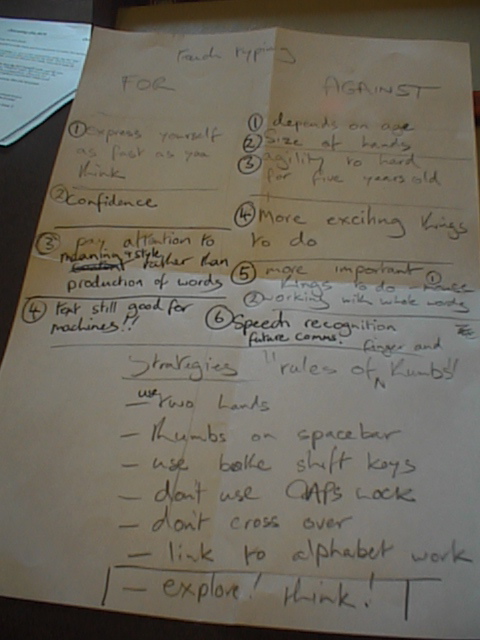 Touch typing
FOR
① Express yourself
as fast as you
think
② Confidence
③ pay attention to
meaning + style
rather than
production of words
④ Text still good for
machines!!
AGAINST
① depends on age
② Size of hands
③ agility to hard
for five years old
④ More exciting things
to do
⑤ more important ①
things to do - mouse
② working with whole words
⑥ Speech recognition
future comms.
Strategies "rules of finger and
N thumbs"
- use two hands
- thumbs on spacebar
- use bothe shift keys
- don't use CAPS Lock
- don't cross over
- link to alphabet work
- explore! think!